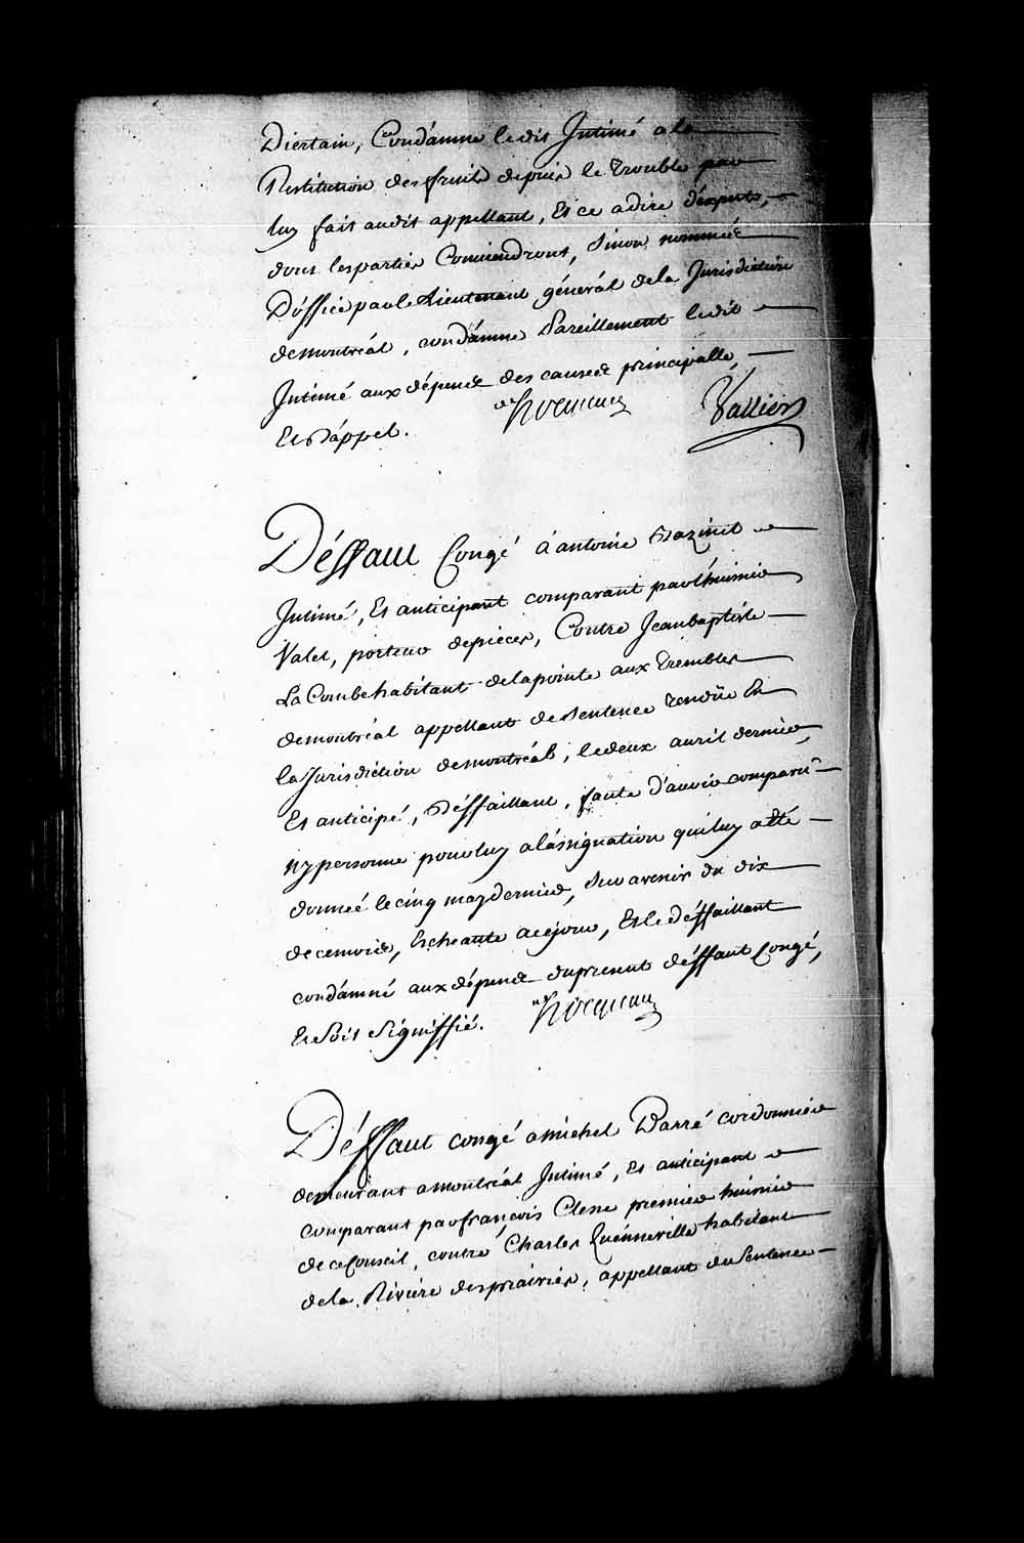 D'iertain, Condamne ledit Intimé a la
Restitution des fruits depuis le trouble par
luy fait audit appellant, Et ce a dire d'experts,
dont les parties Conviendront, Sinon nommés
D'office par le Lieutenant général de la Jurisdiction
de montréal, condamne Pareillement ledit
Intimé aux dépens des causes principalle,
Et D'appel.
Hocquart Vallier
Déffaut Congé a antoine Bazinet
Intimé, Et anticipant comparant par l'huissier
Valet, porteur de pieces, Contre Jean baptiste
La Combe habitant de la pointe aux Trembles
de montréal appellant de Sentence rendüe En
la Jurisdiction de montréal, le deux avril dernier,
Et anticipé, Déffaillant, faute d'avoir comparû
ny personne pour luy a l'assignation qui luy a eté
donnée le cinq may dernier, Sur avenir du dix
de ce mois, Escheante a ce jour, Et le déffaillant
condamné aux dépens du present déffaut Congé,
Et Soit Signiffié.
Hocquart
Déffaut congé a michel Barré cordonnier
demeurant a montréal Intimé, Et anticipant
comparant par françois Clesse premier huissier
de ce Conseil, contre Charles Quenneville habitant
de la Riviere des prairies, appellant de Sentence